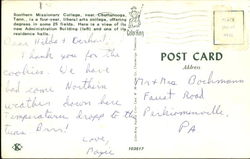 Southern Missionary College, near Chattanooga,
Tenn., is a four-year, liberal arts college, offering
degrees in some 25 fields. Here is a view of its
new Administration Building (left) and one of its
residence halls.
Dear Hilda &
Thank you for the
cookies. We have
had some Northern
weather down here
Temperatures dropp to the
Love,
POST CARD
Address
Mr & Mrs Bachmann
Faust Road
Perkiomenville,
PA